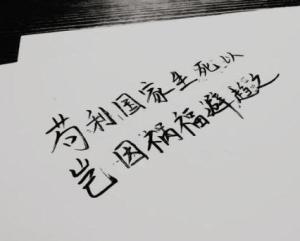 苟利国家生死以
岂因祸福避趋之